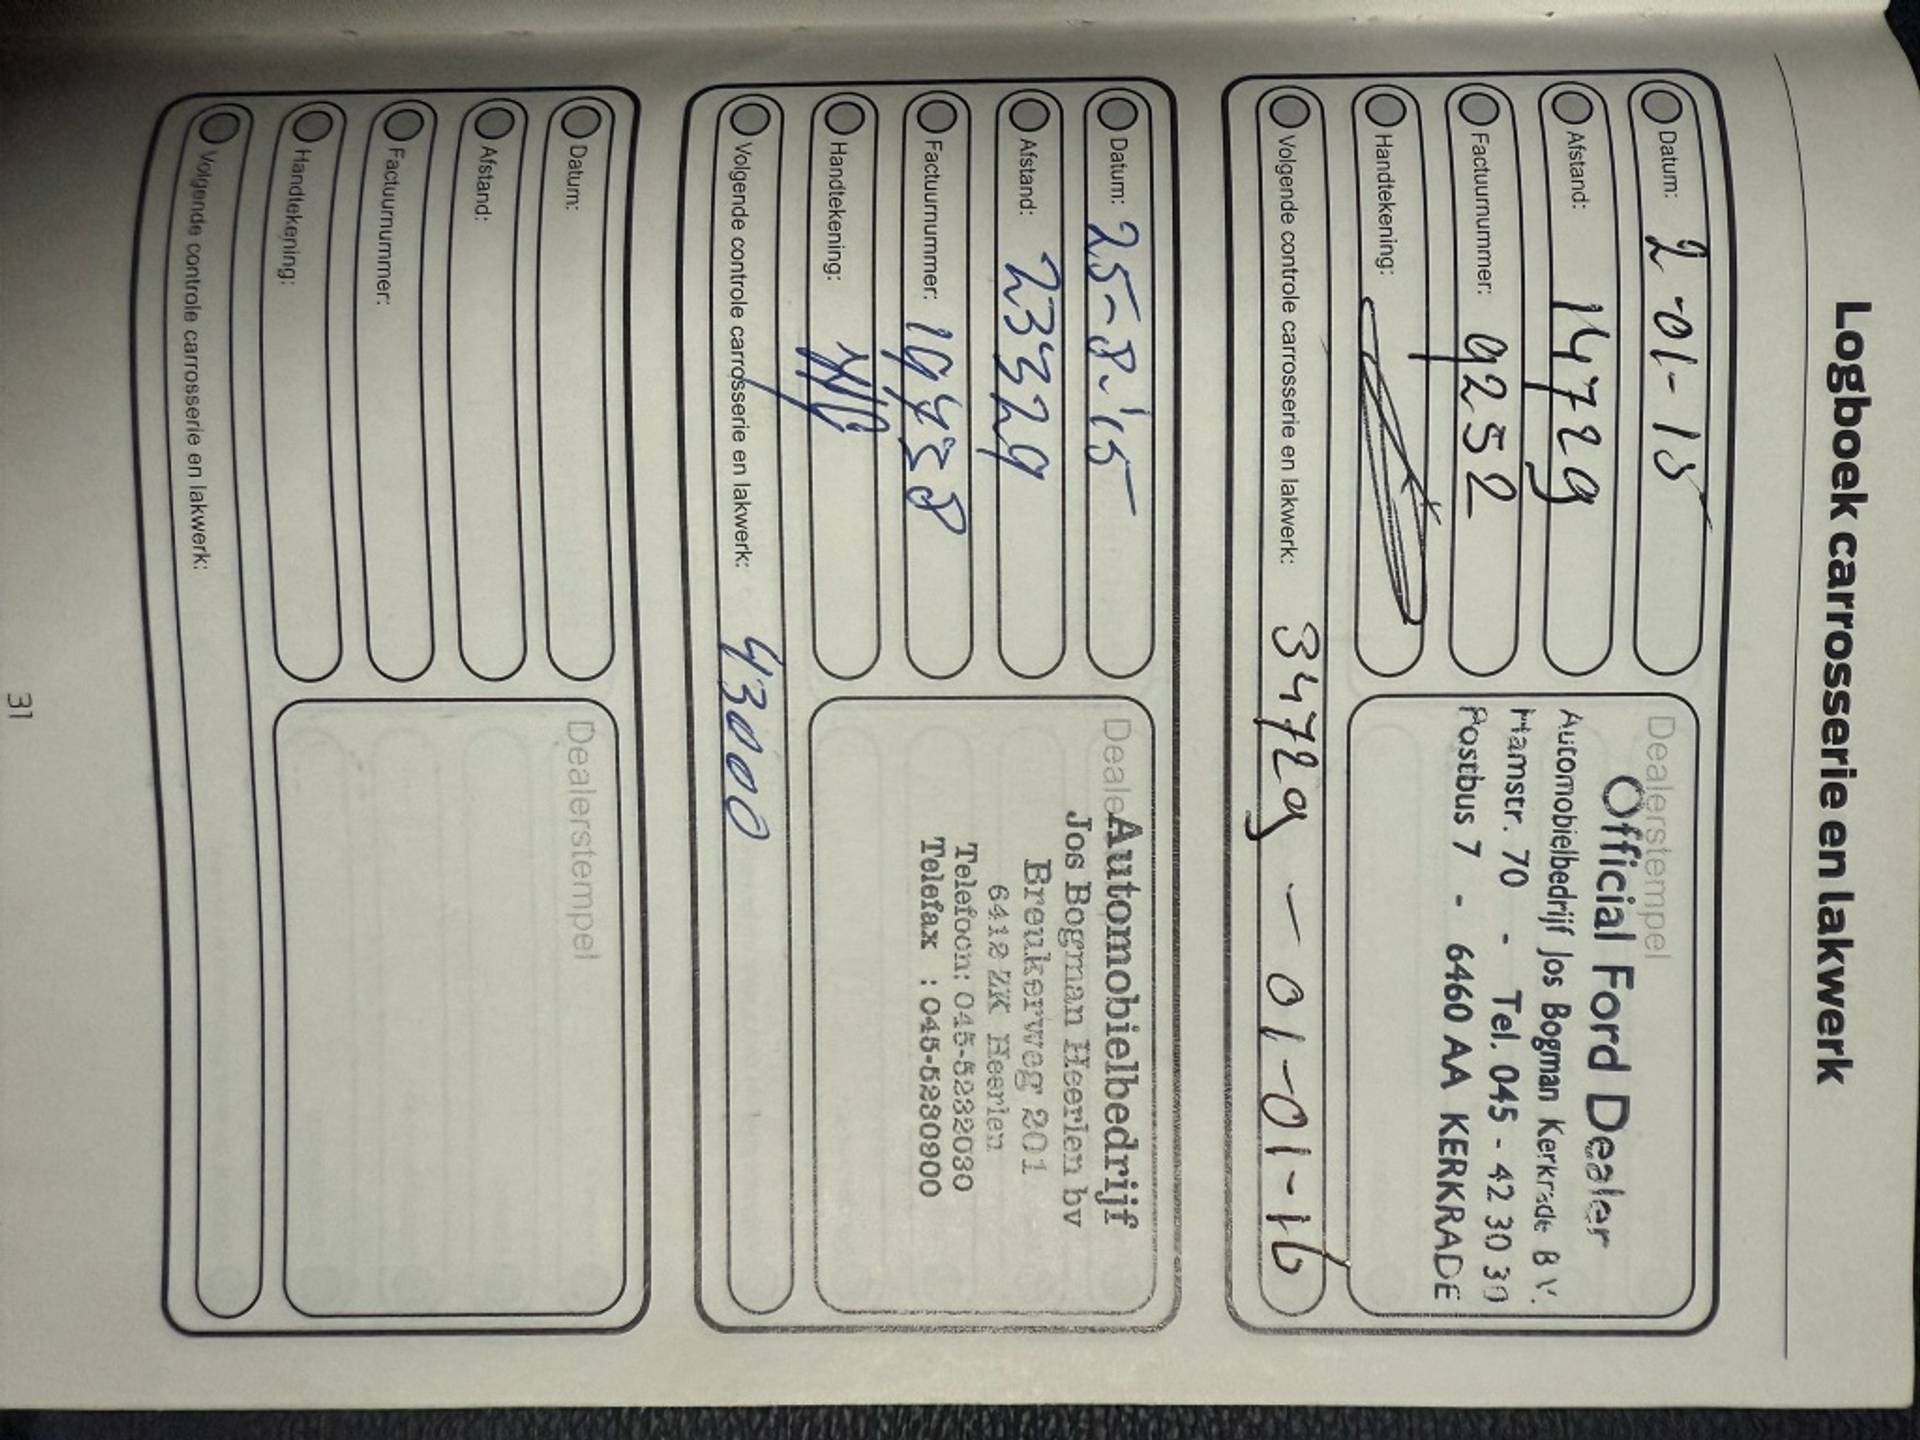 Logboek carrosserie en lakwerk
Datum: 2-01-15
Afstand: 14729
Factuurnummer: 9252
Handtekening:
Dealerstempel
Official Ford Dealer
Automobielbedrijf Jos Bogman Kerkrade B.V.
Hamstr. 70 - Tel. 045 - 42 30 30
Postbus 7 - 6460 AA KERKRADE
Volgende controle carrosserie en lakwerk: 34729 - 01-01-16
Datum: 25-8-'15
Afstand: 23329
Factuurnummer:
Handtekening:
Automobielbedrijf
Jos Bogman Heerlen bv
Breukerweg 201
6412 ZK Heerlen
Telefoon: 045-5232030
Telefax : 045-5230900
Volgende controle carrosserie en lakwerk: 43000
Datum:
Afstand:
Factuurnummer:
Handtekening:
Dealerstempel
Volgende controle carrosserie en lakwerk:
31